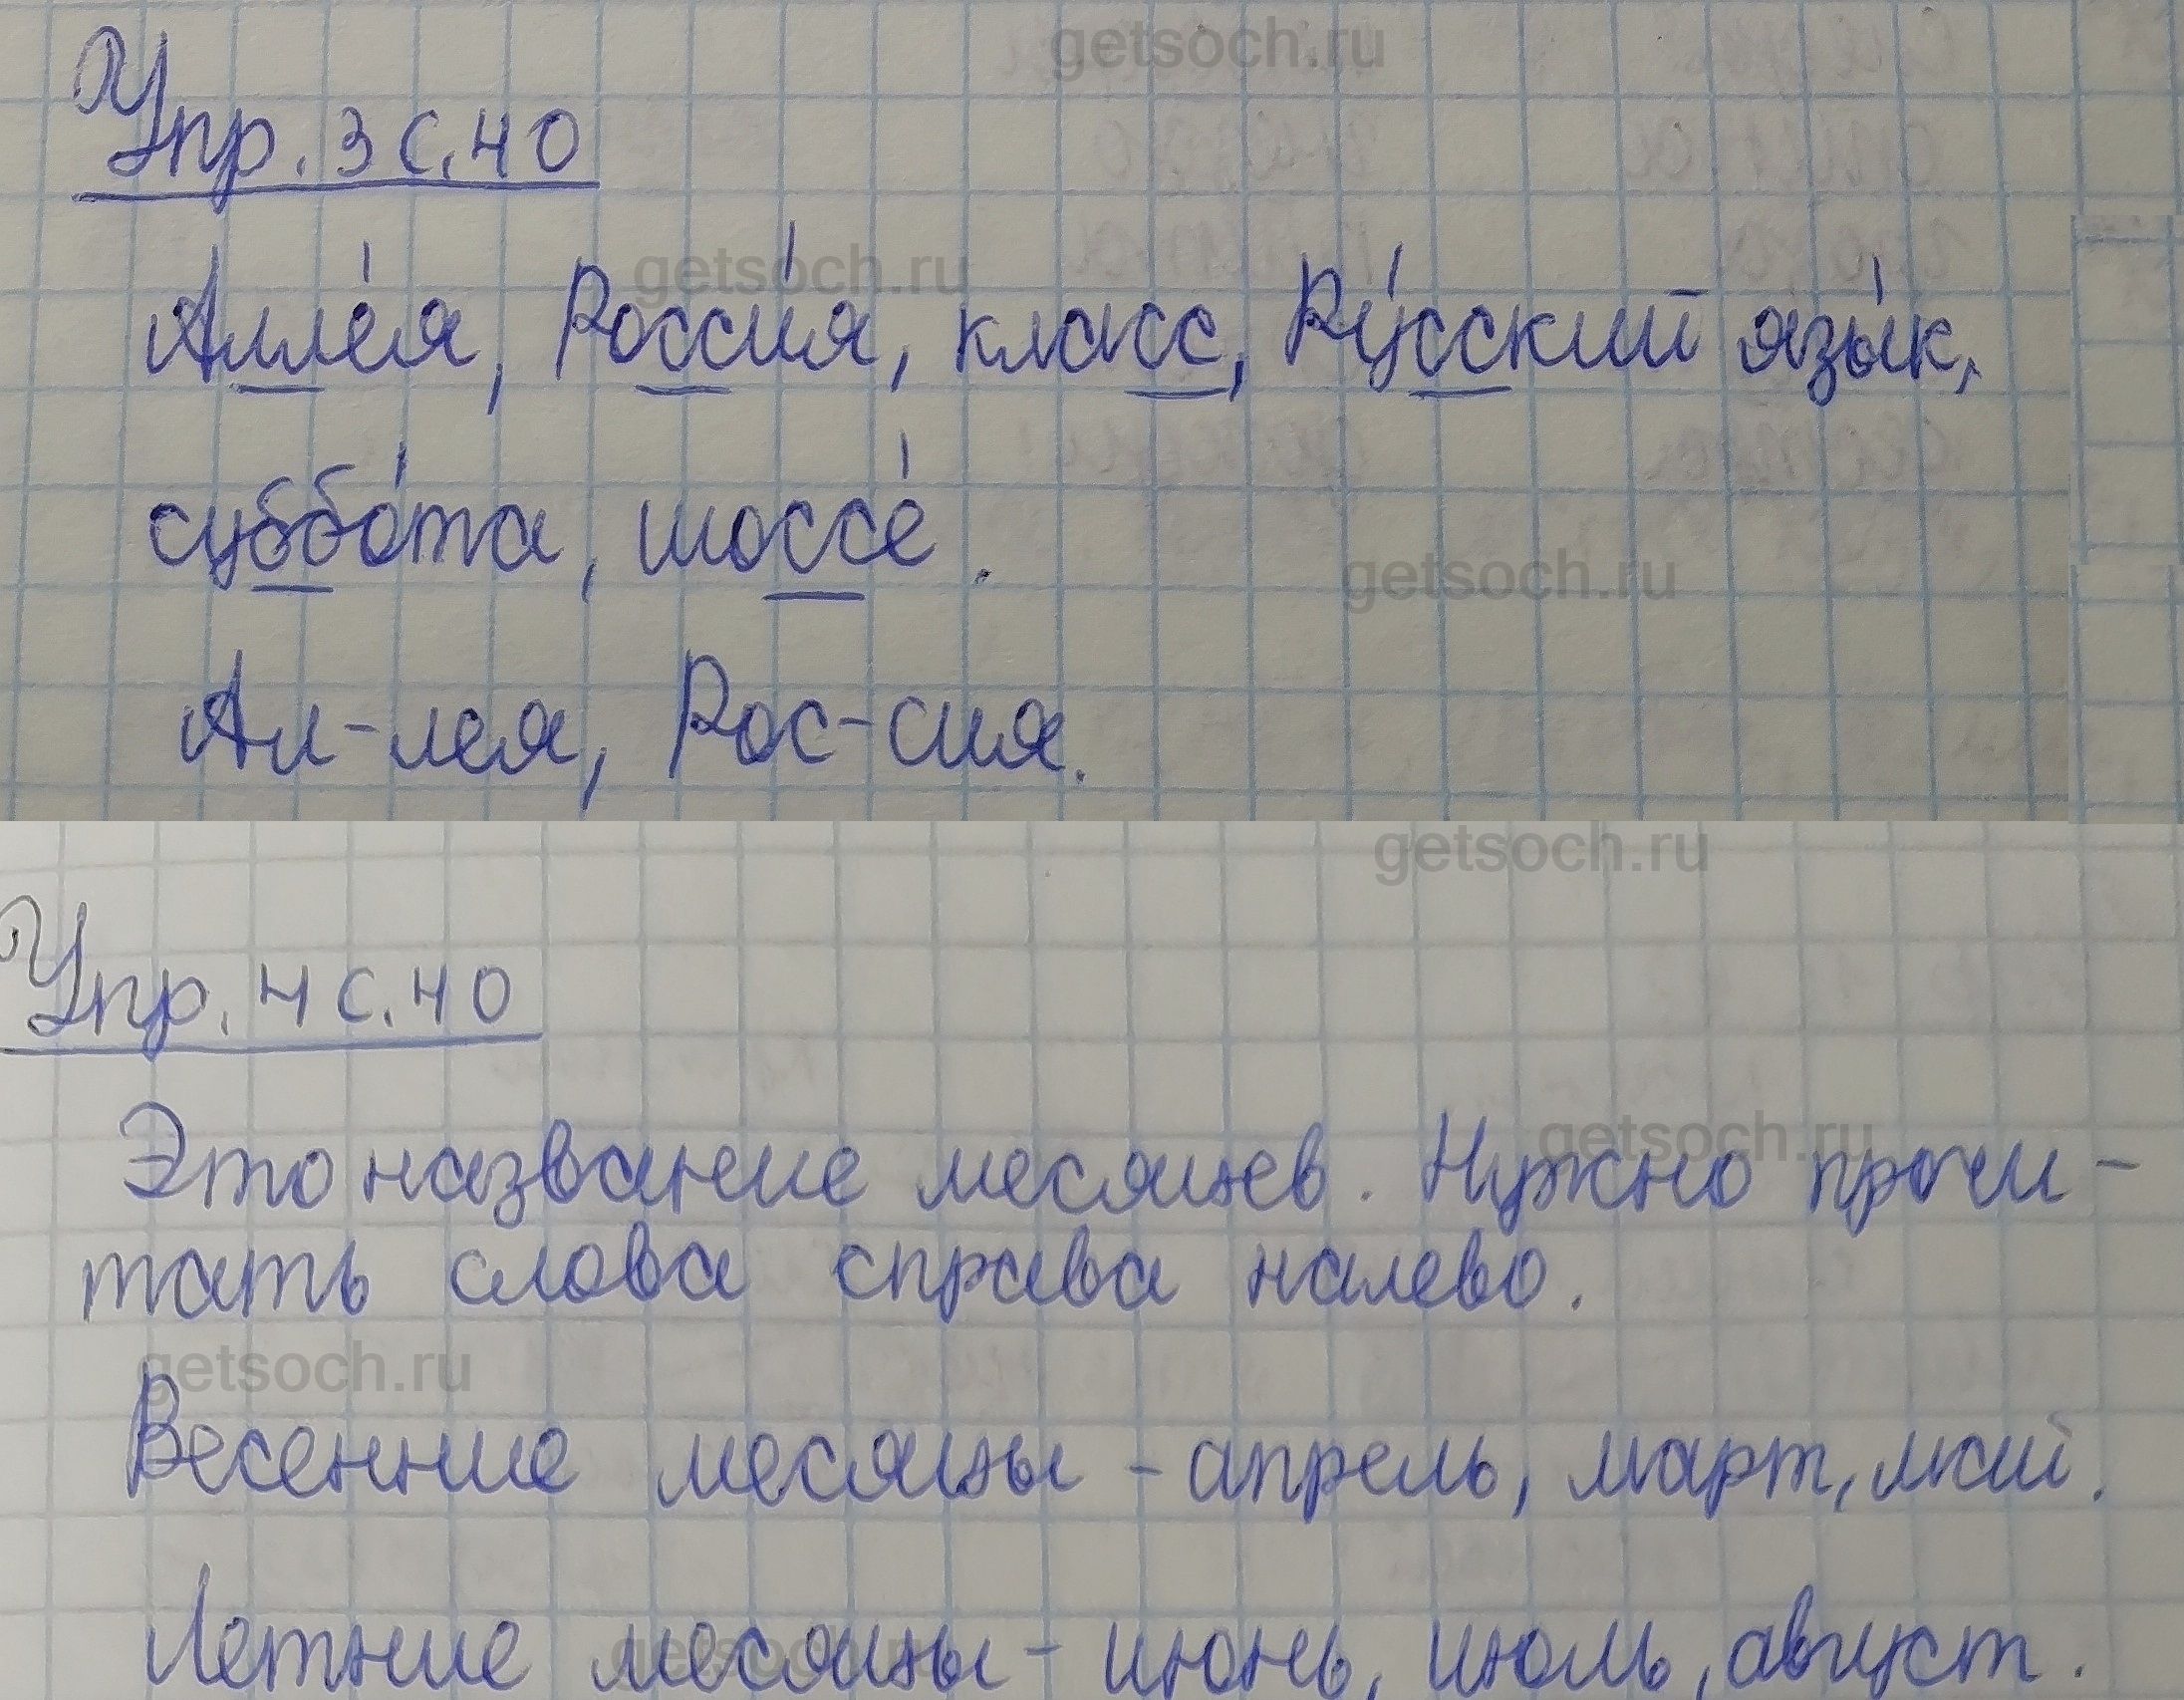 getsoch.ru
Упр. 3 с. 40
getsoch.ru
Алле́я, Росси́я, класс, Ру́сский язы́к,
суббо́та, шоссе́.
getsoch.ru
Ал-лея, Рос-сия.
getsoch.ru
Упр. 4 с. 40
getsoch.ru
Это название месяцев. Нужно прочи-
тать слова справа налево.
getsoch.ru
Весенние месяцы - апрель, март, май.
getsoch.ru
Летние месяцы - июнь, июль, август.